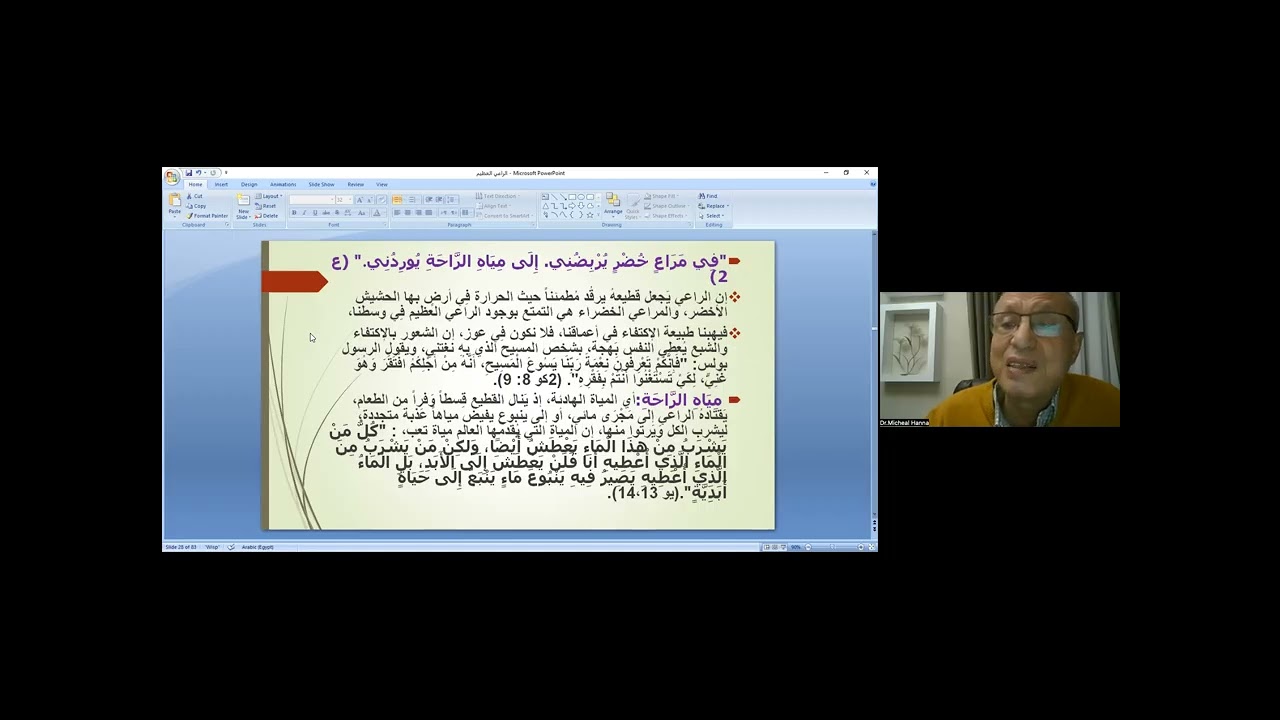 الراعي العظيم - Microsoft PowerPoint
Home Insert Design Animations Slide Show Review View
Cut
Copy
Format Painter
Paste
Clipboard
New Slide
Layout
Reset
Delete
Slides
Font
Text Direction
Align Text
Convert to SmartArt
Paragraph
Arrange
Quick Styles
Shape Fill
Shape Outline
Shape Effects
Drawing
Find
Replace
Select
Editing
"فِي مَرَاعٍ خُضْرٍ يُرْبِضُنِي. إِلَى مِيَاهِ الرَّاحَةِ يُورِدُنِي." (ع
2)
إن الراعي يَجعل قطيعهُ يرقُد مُطمئناً حيث الحرارة فِي أرضٍ بها الحشيش
الأخضر، والمراعي الخضراء هي التمتع بوجود الراعي العظيم فِي وسطنا،
فيهبنا طبيعة الاكتفاء في أعماقنا، فلا نكون فِي عوز، إن الشعور بالاكتفاء
والشبع يُعطِي النفس بَهجة، بشخص المسيح الذي بهِ نغتني، ويقول الرسول
بولس: "فَإِنَّكُمْ تَعْرِفُونَ نِعْمَةَ رَبِّنَا يَسُوعَ الْمَسِيحِ، أَنَّهُ مِنْ أَجْلِكُمُ افْتَقَرَ وَهُوَ
غَنِيٌّ، لِكَيْ تَسْتَغْنُوا أَنْتُمْ بِفَقْرِهِ". (2كو 8: 9).
مِيَاهِ الرَّاحَةِ: أي المياة الهادئة، إذ يَنال القطيع قِسطاً وَفِراً من الطعام،
يَقتادهُ الراعي إلىَ مَجْرَى مائي، أو إلى ينبوع يفيض مياهاً عَذبة متجددة،
ليشرب الكل ويرتوا منها، إن المياة التي يقدمها العالم مياة تعب، : "كُلُّ مَنْ
يَشْرَبُ مِنْ هذَا الْمَاءِ يَعْطَشُ أَيْضًا، وَلكِنْ مَنْ يَشْرَبُ مِنَ
الْمَاءِ الَّذِي أُعْطِيهِ أَنَا فَلَنْ يَعْطَشَ إِلَى الأَبَدِ، بَلِ الْمَاءُ
الَّذِي أُعْطِيهِ يَصِيرُ فِيهِ يَنْبُوعَ مَاءٍ يَنْبَعُ إِلَى حَيَاةٍ
أَبَدِيَّةٍ".(يو 14،13).
Slide 28 of 83 "Wisp" Arabic (Egypt) 90%
Dr.Micheal Hanna